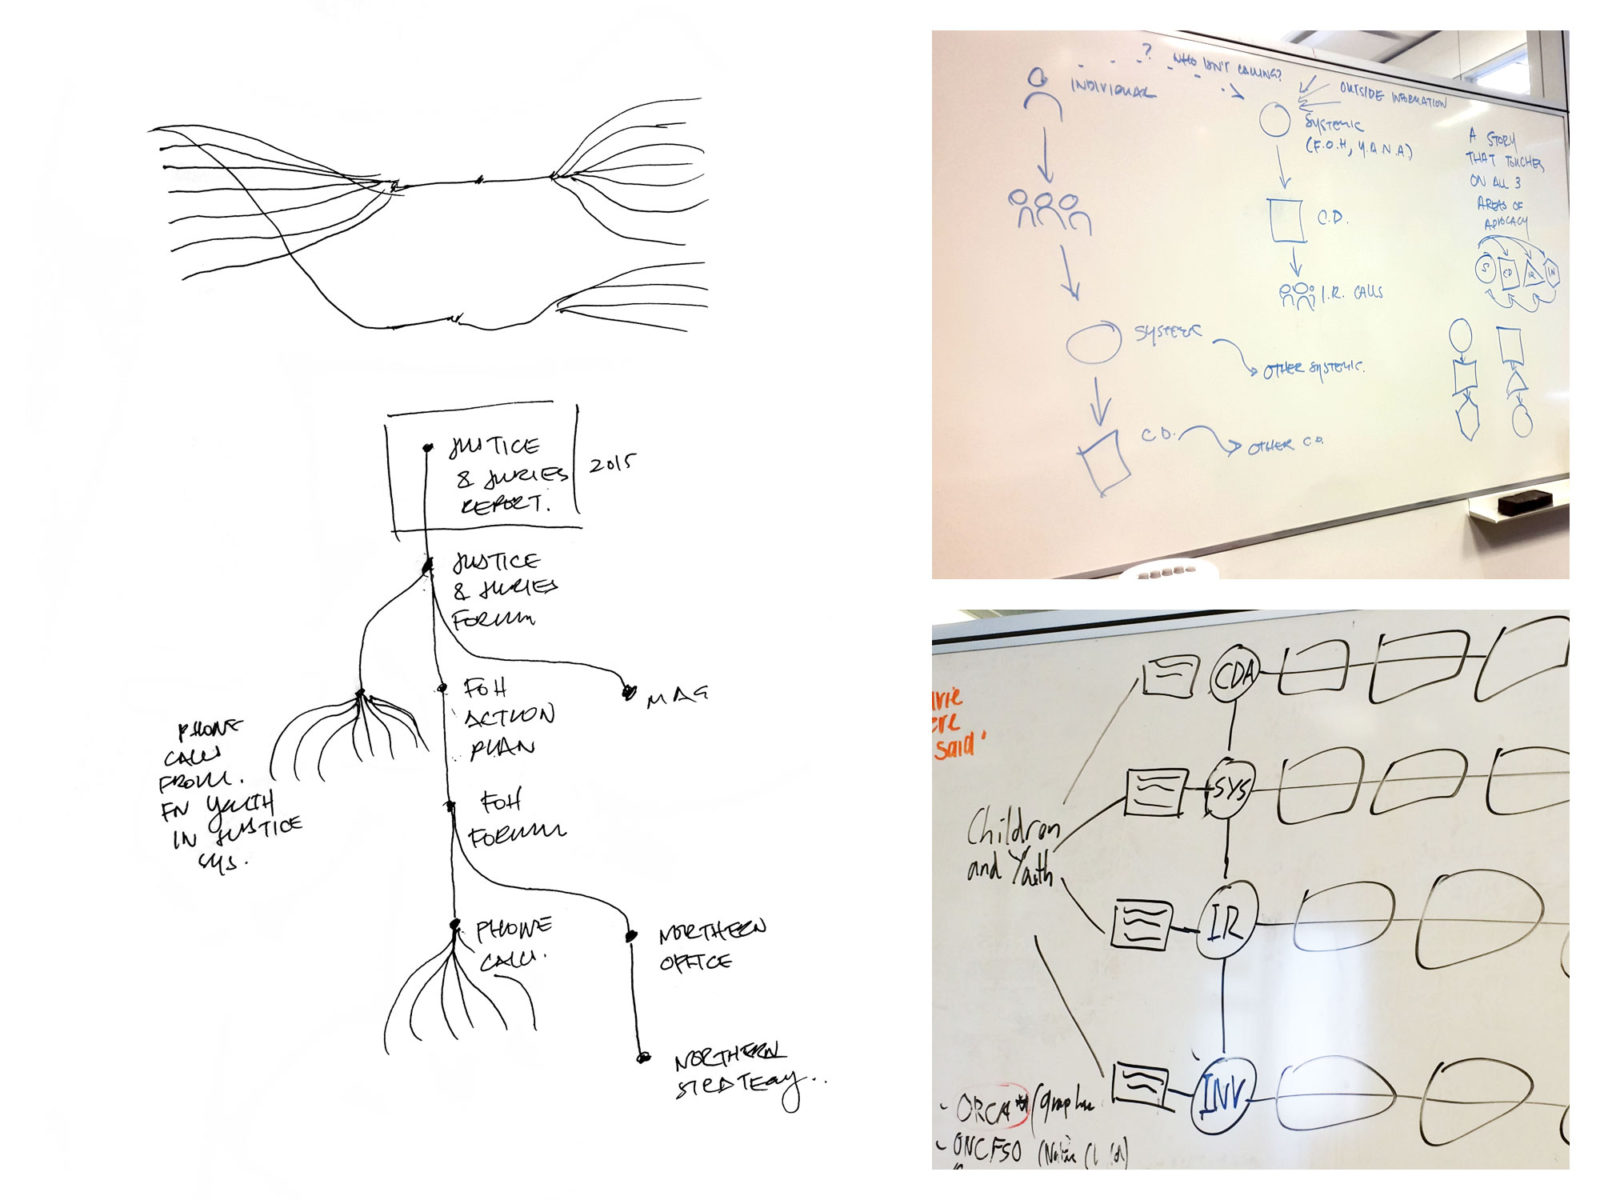 JUSTICE
& JURIES
REPORT.
2015
JUSTICE
& JURIES
FORUM
MAG
FOH
ACTION
PLAN
PHONE
CALLS
FROM
FN YOUTH
IN JUSTICE
SYS.
FOH
FORUM
PHONE
CALLS.
NORTHERN
OFFICE
NORTHERN
STRATEGY..
? WHO ISN'T CALLING?
INDIVIDUAL
OUTSIDE INFORMATION
SYSTEMIC
(F.O.H, Y.A.N.A)
C.D.
I.R. CALLS
SYSTEMIC
OTHER SYSTEMIC.
C.D.
OTHER C.D.
A STORY
THAT TOUCHES
ON ALL 3
AREAS OF
ADVOCACY
S CD IR IN
said'
CDA
SYS
Children
and Youth
IR
INV
- ORCA
- ONCFSO